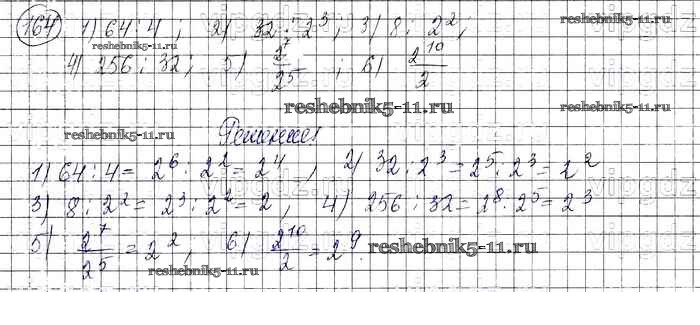 164 1) 64 : 4 ; 2) 32 : 2³; 3) 8 : 2²;
reshebnik5-11.ru
4) 256 : 32; 5) 2⁷/2⁵ ; 6) 2¹⁰/2
reshebnik5-11.ru
reshebnik5-11.ru
reshebnik5-11.ru
Решение
1) 64 : 4 = 2⁶ : 2² = 2⁴ , 2) 32 : 2³ = 2⁵ : 2³ = 2²
3) 8 : 2² = 2³ : 2² = 2 , 4) 256 : 32 = 2⁸ : 2⁵ = 2³
5) 2⁷/2⁵ = 2², 6) 2¹⁰/2 = 2⁹.
reshebnik5-11.ru
reshebnik5-11.ru